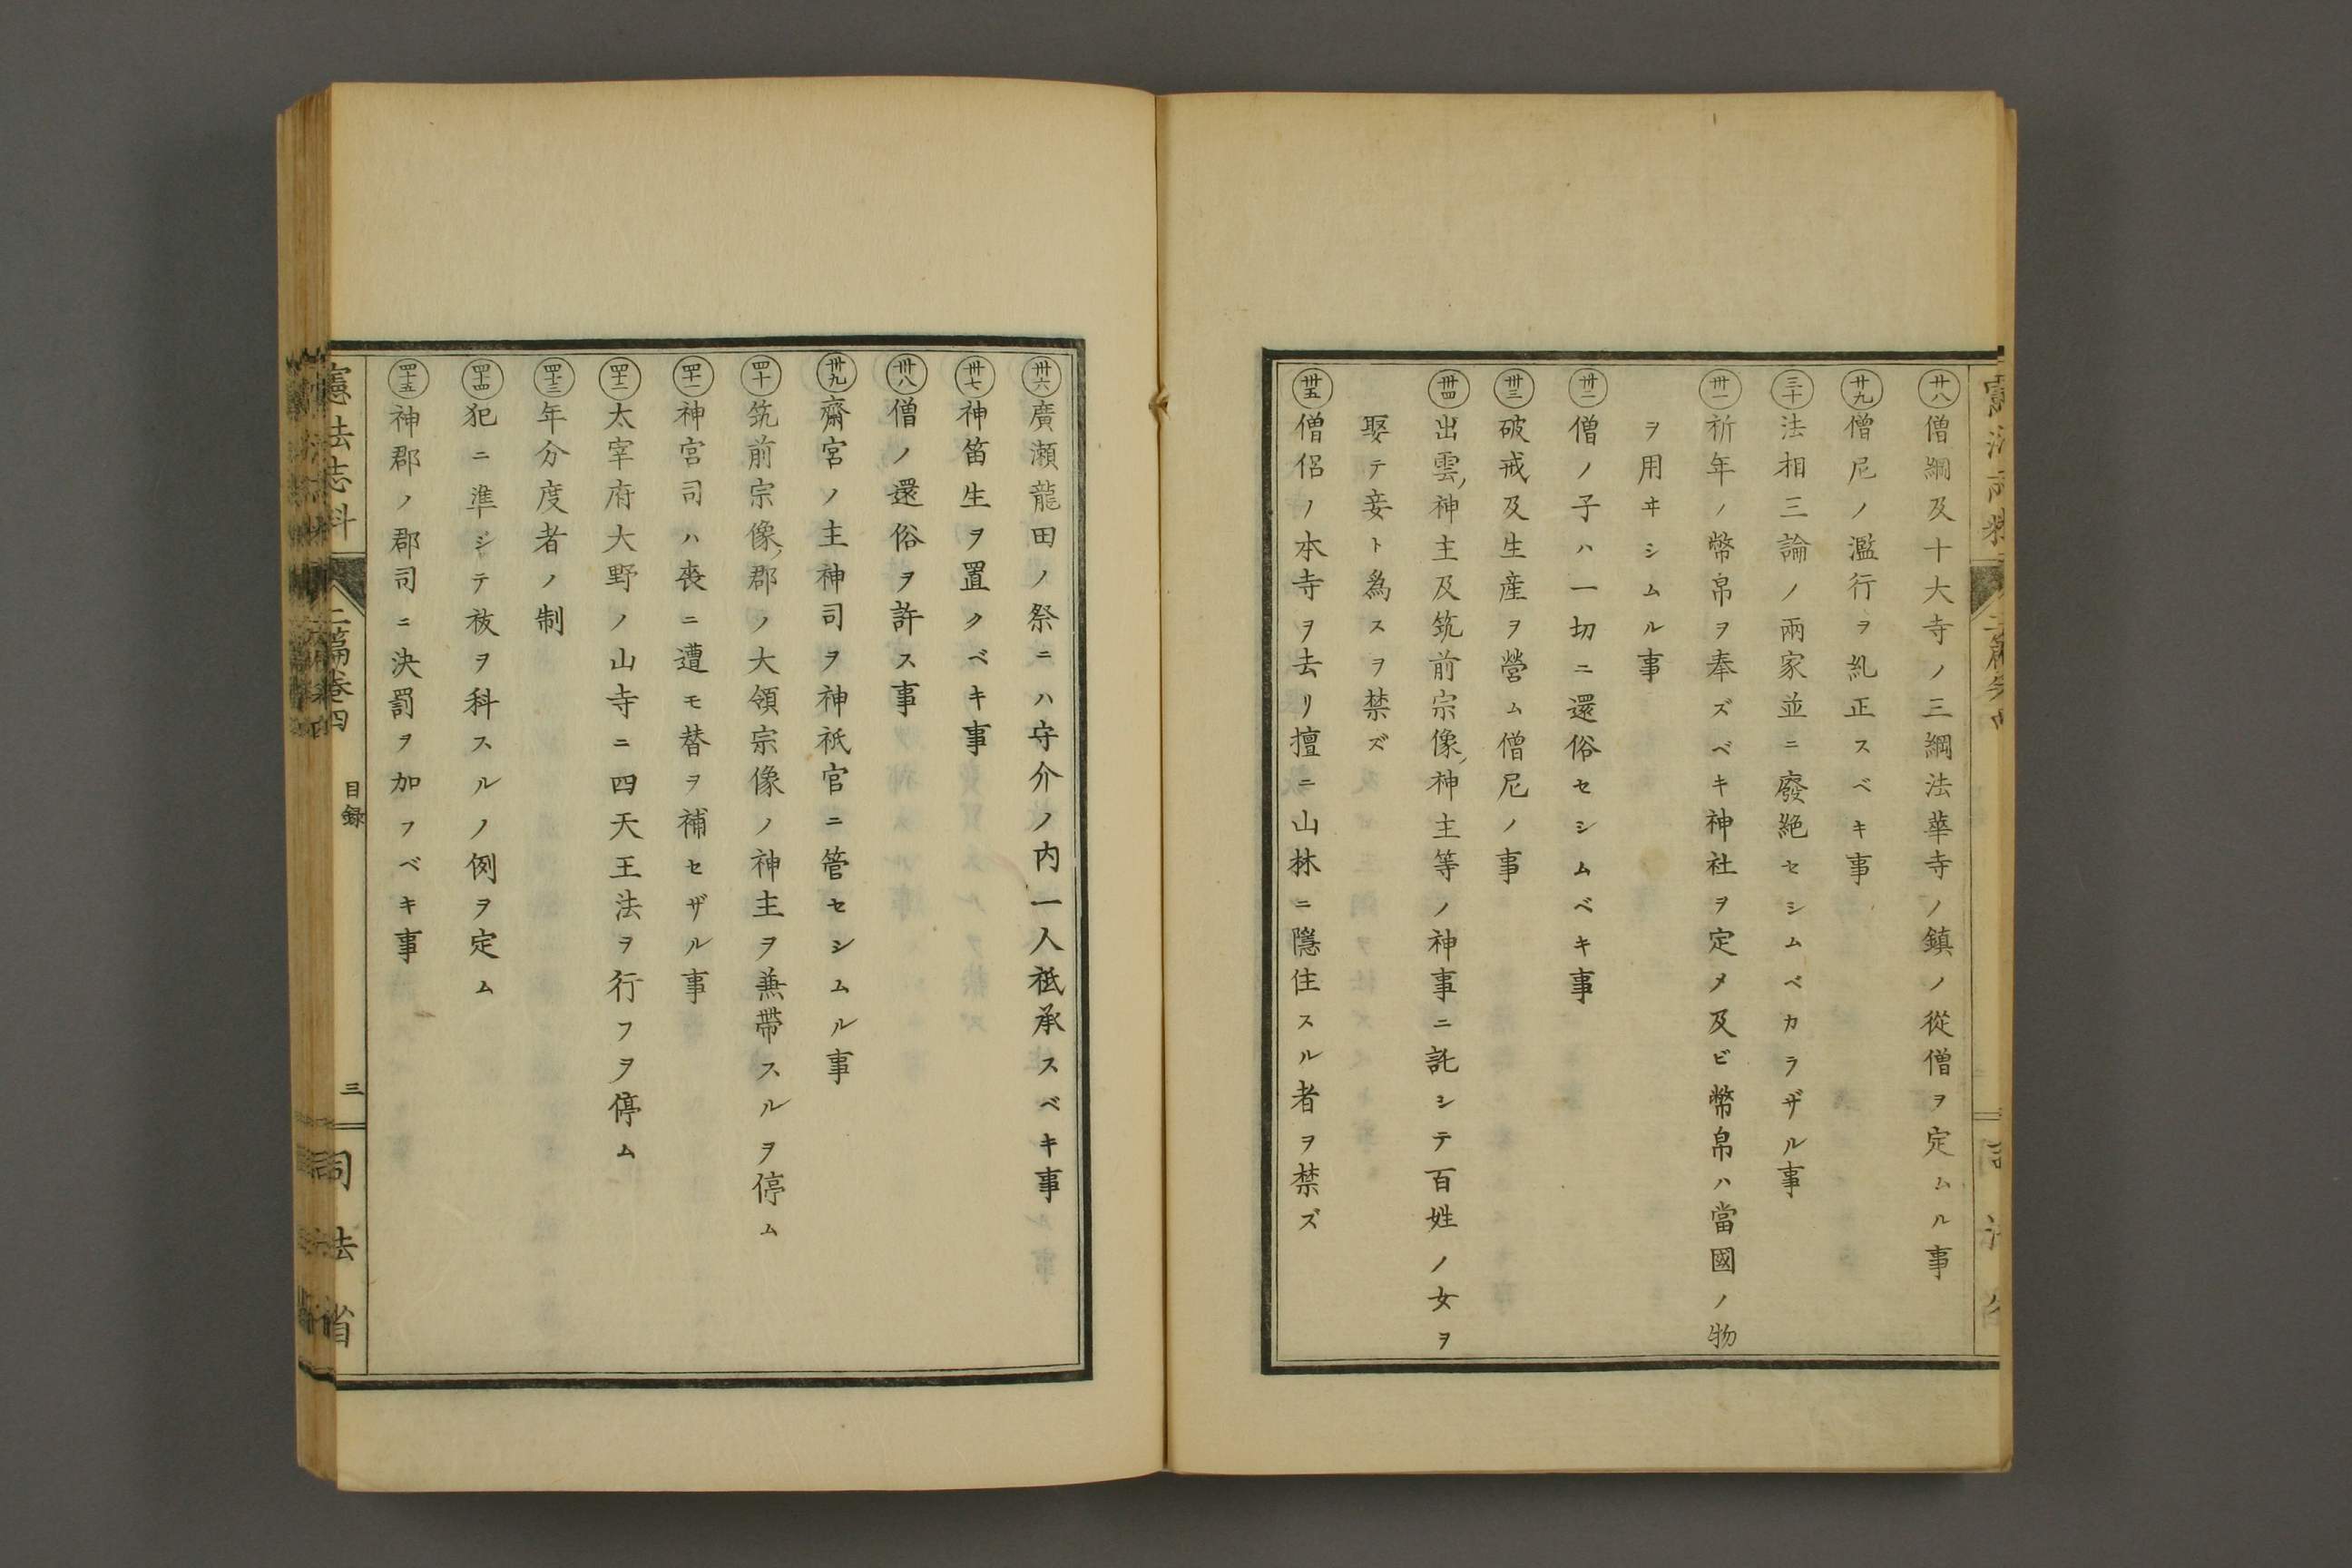 廿八 僧綱及十大寺ノ三綱法華寺ノ鎮ノ從僧ヲ定ムル事
廿九 僧尼ノ濫行ヲ糺正スベキ事
三十 法相三論ノ兩家並ニ廢絶セシムベカラザル事
卅一 祈年ノ幣帛ヲ奉ズベキ神社ヲ定メ及ビ幣帛ハ當國ノ物
ヲ用ヰシムル事
卅二 僧ノ子ハ一切ニ還俗セシムベキ事
卅三 破戒及生産ヲ營ム僧尼ノ事
卅四 出雲神主及筑前宗像神主等ノ神事ニ託シテ百姓ノ女ヲ
娶テ妾ト爲スヲ禁ズ
卅五 僧侶ノ本寺ヲ去リ擅ニ山林ニ隱住スル者ヲ禁ズ
卅六 廣瀬龍田ノ祭ニハ守介ノ内一人祗承スベキ事
卅七 神笛生ヲ置クベキ事
卅八 僧ノ還俗ヲ許ス事
卅九 齋宮ノ主神司ヲ神祇官ニ管セシムル事
四十 筑前宗像郡ノ大領宗像ノ神主ヲ兼帶スルヲ停ム
四十一 神宮司ハ喪ニ遭モ替ヲ補セザル事
四十二 太宰府大野ノ山寺ニ四天王法ヲ行フヲ停ム
四十三 年分度者ノ制
四十四 犯ニ準シテ祓ヲ科スルノ例ヲ定ム
四十五 神郡ノ郡司ニ決罰ヲ加フベキ事
憲法志料 二篇卷四 目録 三 司法省